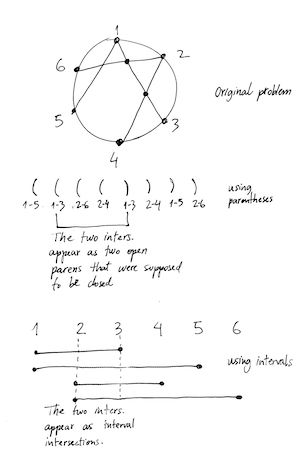 1
6 2
Original problem
5 3
4
( ( ( ( ) ) ) )
using
parentheses
1-5 1-3 2-6 2-4 1-3 2-4 1-5 2-6
The two inters.
appear as two open
parens that were supposed
to be closed
1 2 3 4 5 6
using intervals
The two inters.
appear as interval
intersections.